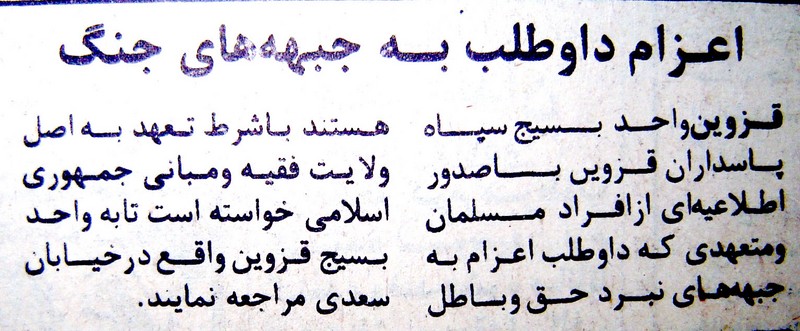 اعزام داوطلب به جبهه‌های جنگ
قزوین‌واحد بسیج سپاه
پاسداران قزوین بـاصدور
اطلاعیه‌ای ازافراد مسلمان
ومتعهدی که داوطلب اعزام به
جبهه‌های نبرد حق وباطل
هستند باشرط تعهد به اصل
ولایت فقیه ومبانی جمهوری
اسلامی خواسته است تابه واحد
بسیج قزوین واقع درخیابان
سعدی مراجعه نمایند.